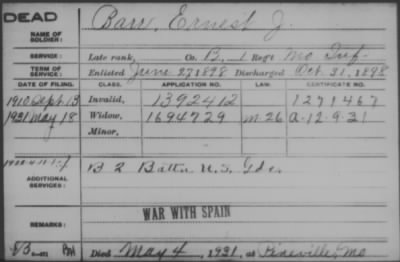 DEAD
NAME OF SOLDIER: Barr, Ernest J.
SERVICE: Late rank, Co. B, 1 Reg't Mo Inf.
TERM OF SERVICE: Enlisted June 27 1898 Discharged Oct. 31, 1898
DATE OF FILING. CLASS. APPLICATION NO. LAW. CERTIFICATE NO.
1910 Sept. 13 Invalid, 1392412 1271467
1931 May 18 Widow, 1694729 M-26 A-12-9-31
Minor,
ADDITIONAL SERVICES: B 2 Battn U.S. Gds.
REMARKS: WAR WITH SPAIN
Died May 4, 1931, at Pineville, Mo